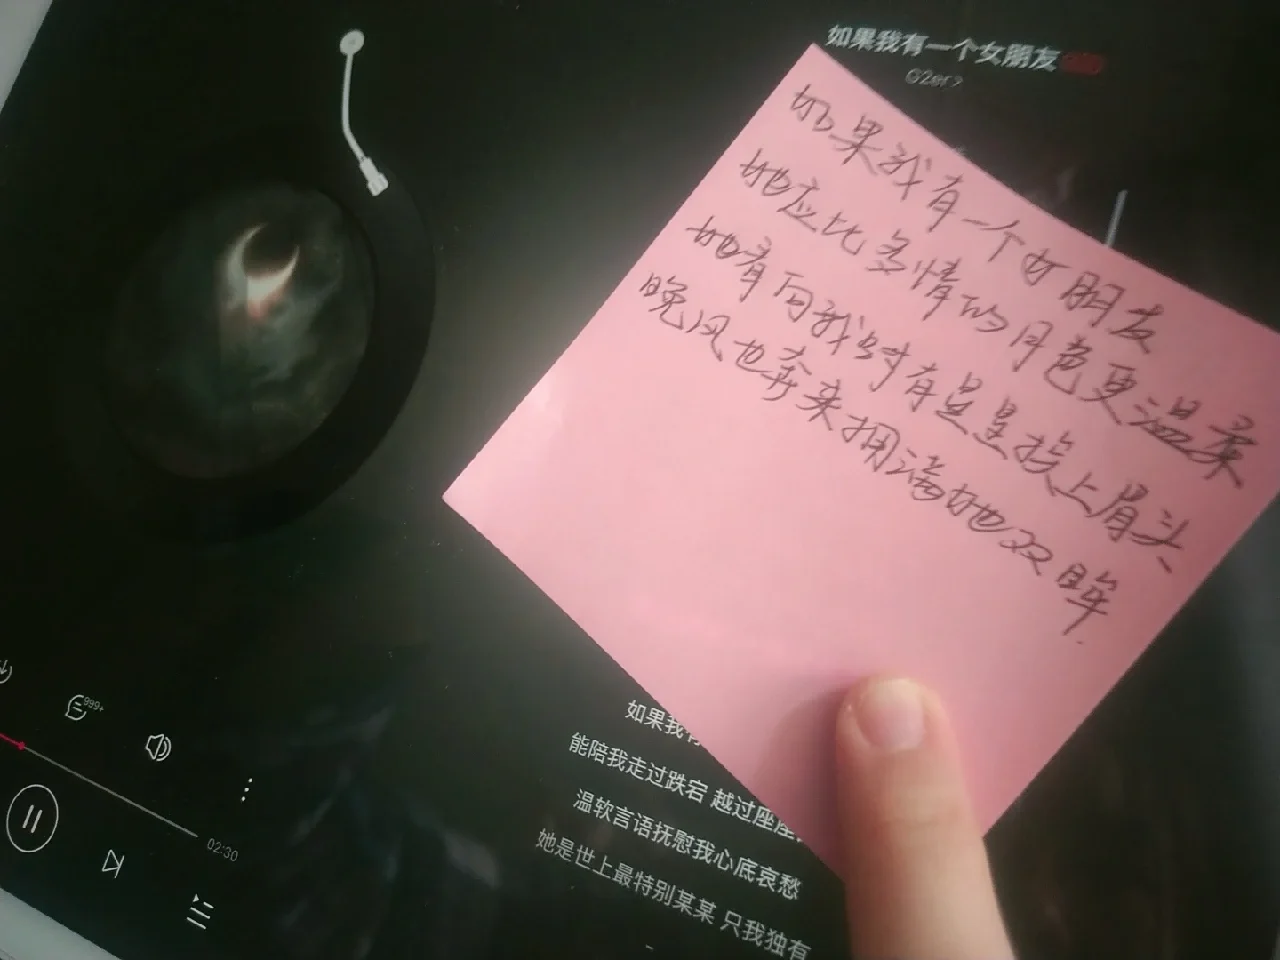 如果我有一个女朋友
G2er
如果我有一个女朋友
她应比多情的月色更温柔
她看向我时有星星挨上眉头
晚风也奔来拥满她双眸
如果我有
能陪我走过跌宕 越过座座
温软言语抚慰我心底哀愁
她是世上最特别某某 只我独有
999+
02:30